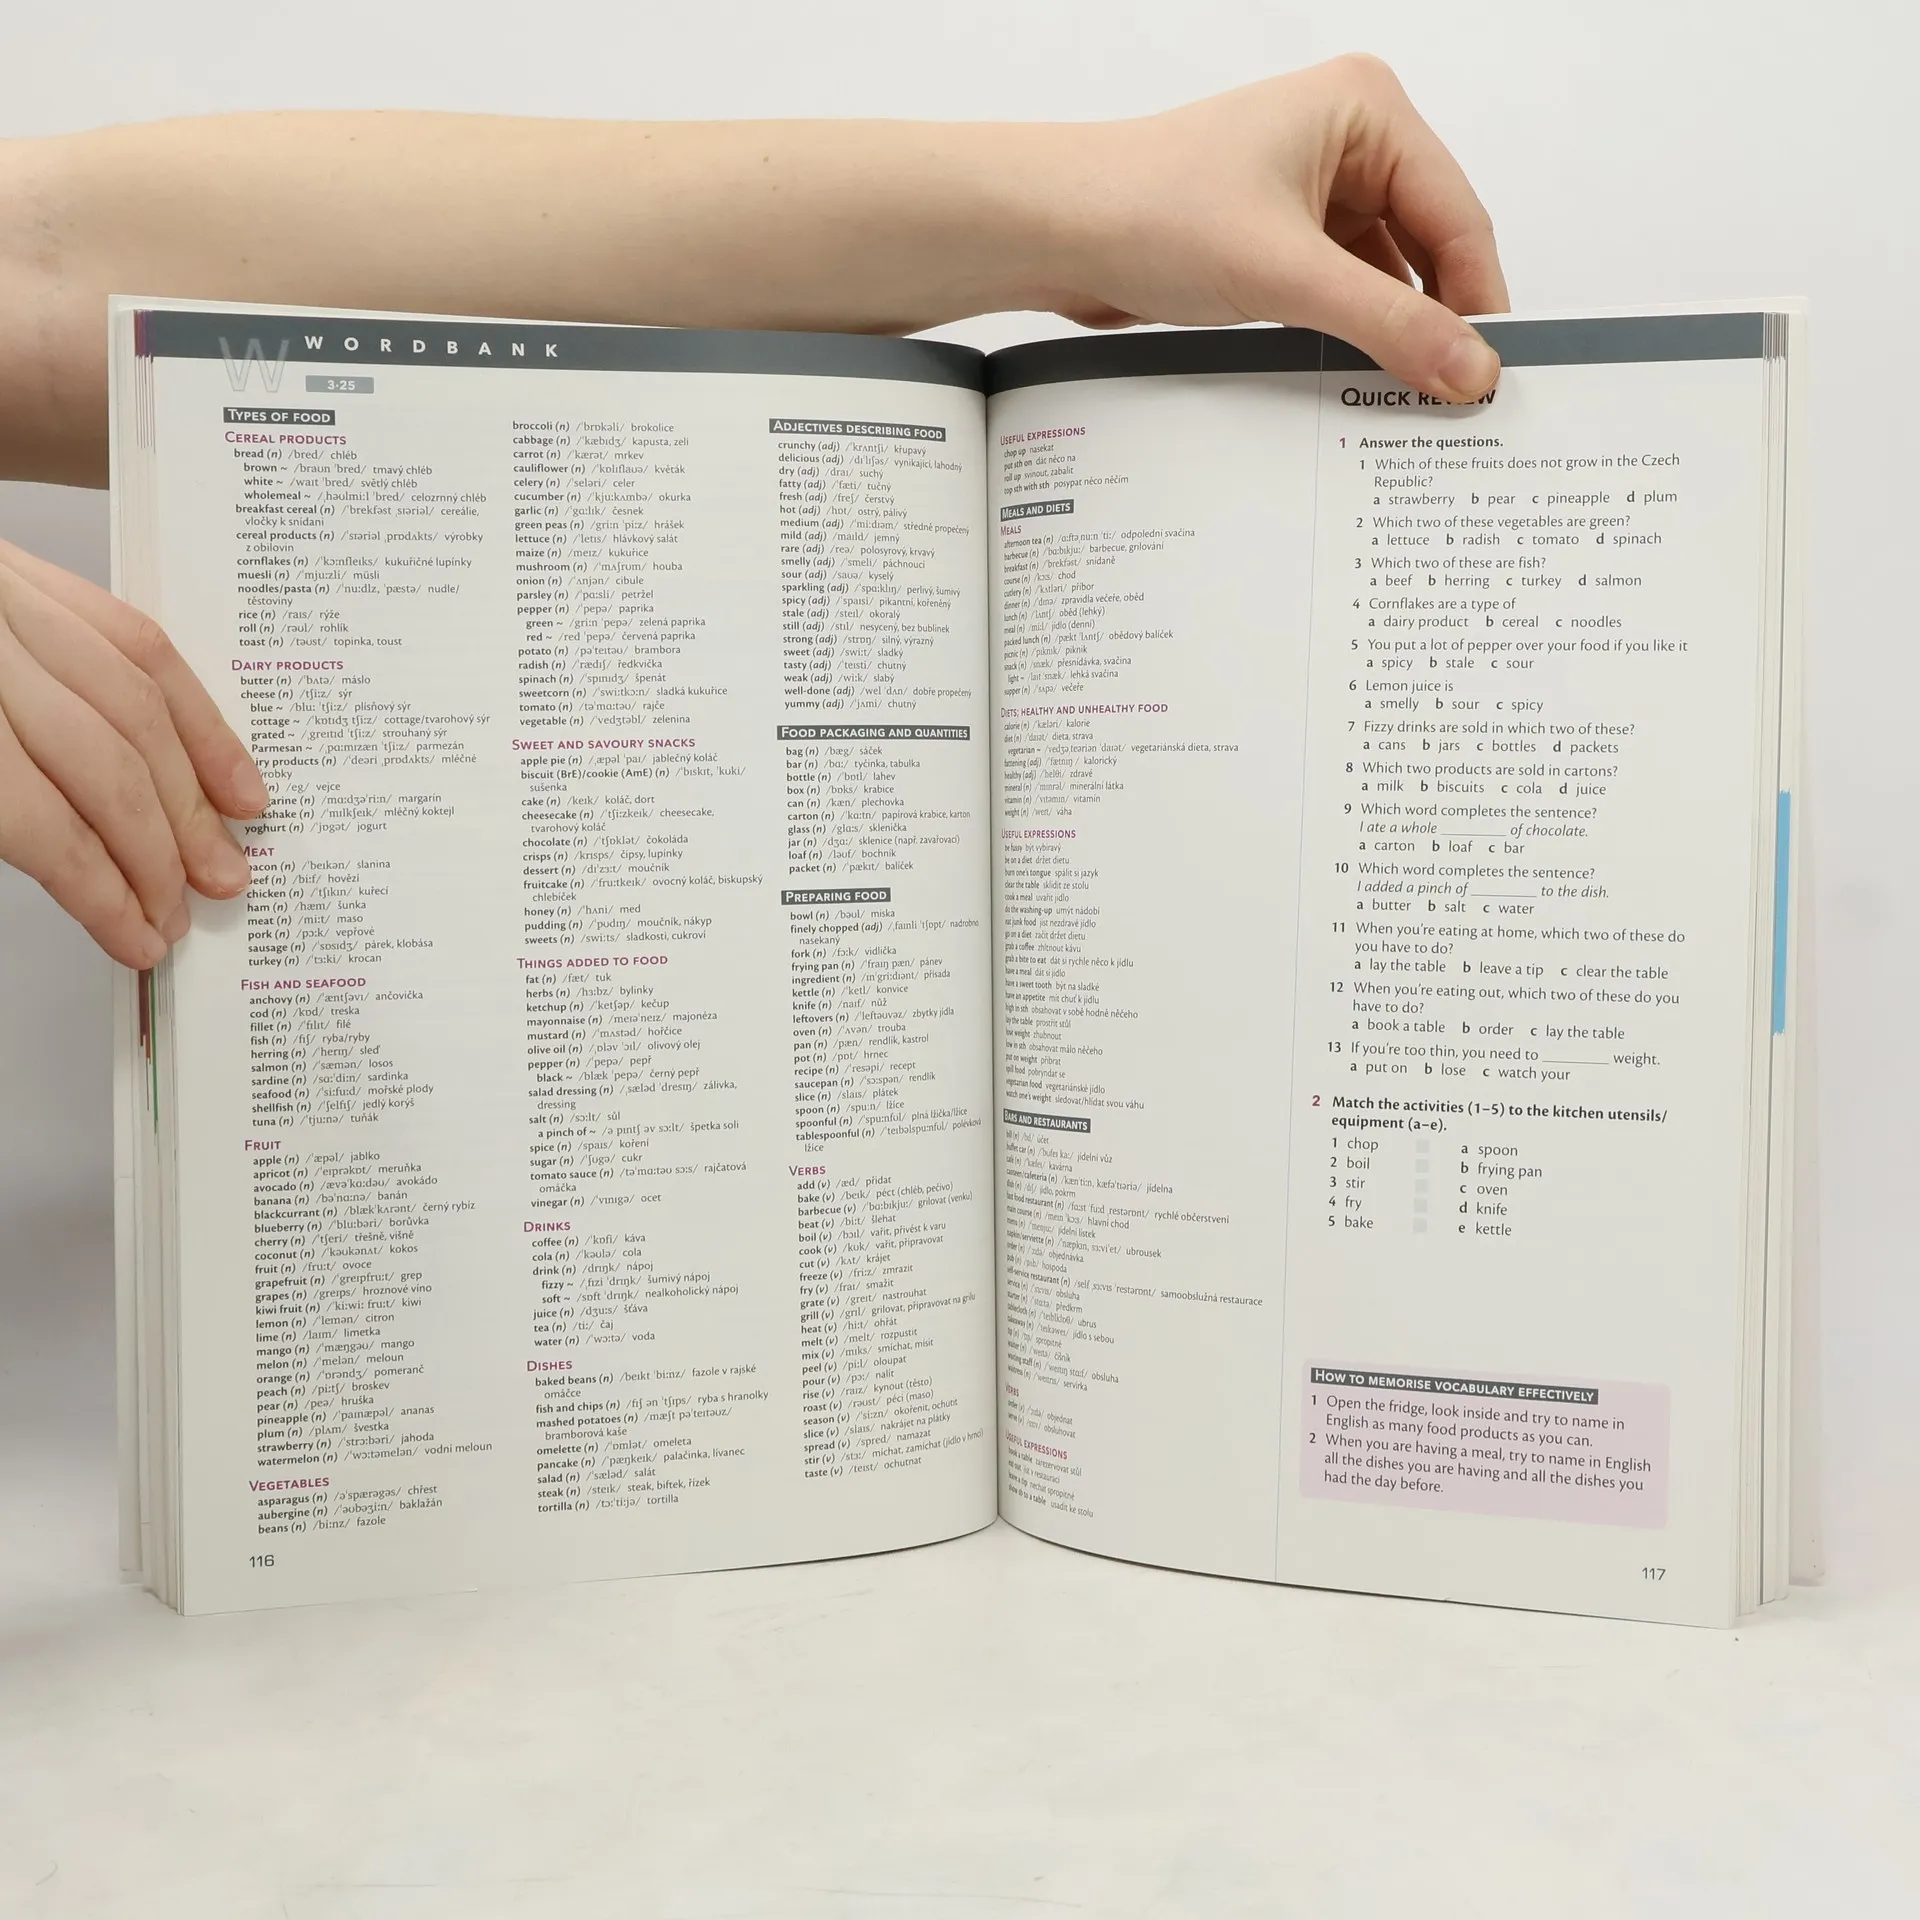 W WORDBANK
3·25
TYPES OF FOOD
CEREAL PRODUCTS
bread (n) /bred/ chléb
brown ~ /braʊn ˈbred/ tmavý chléb
white ~ /waɪt ˈbred/ světlý chléb
wholemeal ~ /ˌhəʊlmiːl ˈbred/ celozrnný chléb
breakfast cereal (n) /ˈbrekfəst ˌsɪəriəl/ cereálie,
vločky k snídani
cereal products (n) /ˈsɪəriəl ˌprɒdʌkts/ výrobky
z obilovin
cornflakes (n) /ˈkɔːnfleɪks/ kukuřičné lupínky
muesli (n) /ˈmjuːzli/ müsli
noodles/pasta (n) /ˈnuːdlz, ˈpæstə/ nudle/
těstoviny
rice (n) /raɪs/ rýže
roll (n) /rəʊl/ rohlík
toast (n) /təʊst/ topinka, toust
DAIRY PRODUCTS
butter (n) /ˈbʌtə/ máslo
cheese (n) /tʃiːz/ sýr
blue ~ /bluː ˈtʃiːz/ plísňový sýr
cottage ~ /ˈkɒtɪdʒ tʃiːz/ cottage/tvarohový sýr
grated ~ /ˌɡreɪtɪd ˈtʃiːz/ strouhaný sýr
Parmesan ~ /ˌpɑːmɪzæn ˈtʃiːz/ parmezán
iry products (n) /ˈdeəri ˌprɒdʌkts/ mléčné
ýrobky
(n) /eɡ/ vejce
garine (n) /mɑːdʒəˈriːn/ margarín
lkshake (n) /ˈmɪlkʃeɪk/ mléčný koktejl
yoghurt (n) /ˈjɒɡət/ jogurt
MEAT
bacon (n) /ˈbeɪkən/ slanina
beef (n) /biːf/ hovězí
chicken (n) /ˈtʃɪkɪn/ kuřecí
ham (n) /hæm/ šunka
meat (n) /miːt/ maso
pork (n) /pɔːk/ vepřové
sausage (n) /ˈsɒsɪdʒ/ párek, klobása
turkey (n) /ˈtɜːki/ krocan
FISH AND SEAFOOD
anchovy (n) /ˈæntʃəvi/ ančovička
cod (n) /kɒd/ treska
fillet (n) /ˈfɪlɪt/ filé
fish (n) /fɪʃ/ ryba/ryby
herring (n) /ˈherɪŋ/ sleď
salmon (n) /ˈsæmən/ losos
sardine (n) /sɑːˈdiːn/ sardinka
seafood (n) /ˈsiːfuːd/ mořské plody
shellfish (n) /ˈʃelfɪʃ/ jedlý korýš
tuna (n) /ˈtjuːnə/ tuňák
FRUIT
apple (n) /ˈæpəl/ jablko
apricot (n) /ˈeɪprəkɒt/ meruňka
avocado (n) /ævəˈkɑːdəʊ/ avokádo
banana (n) /bəˈnɑːnə/ banán
blackcurrant (n) /blækˈkʌrənt/ černý rybíz
blueberry (n) /ˈbluːbəri/ borůvka
cherry (n) /ˈtʃeri/ třešně, višně
coconut (n) /ˈkəʊkənʌt/ kokos
fruit (n) /fruːt/ ovoce
grapefruit (n) /ˈɡreɪpfruːt/ grep
grapes (n) /ɡreɪps/ hroznové víno
kiwi fruit (n) /ˈkiːwiː fruːt/ kiwi
lemon (n) /ˈlemən/ citron
lime (n) /laɪm/ limetka
mango (n) /ˈmæŋɡəʊ/ mango
melon (n) /ˈmelən/ meloun
orange (n) /ˈɒrəndʒ/ pomeranč
peach (n) /piːtʃ/ broskev
pear (n) /peə/ hruška
pineapple (n) /ˈpaɪnæpəl/ ananas
plum (n) /plʌm/ švestka
strawberry (n) /ˈstrɔːbəri/ jahoda
watermelon (n) /ˈwɔːtəmelən/ vodní meloun
VEGETABLES
asparagus (n) /əˈspærəɡəs/ chřest
aubergine (n) /ˈəʊbəʒiːn/ baklažán
beans (n) /biːnz/ fazole
116
broccoli (n) /ˈbrɒkəli/ brokolice
cabbage (n) /ˈkæbɪdʒ/ kapusta, zelí
carrot (n) /ˈkærət/ mrkev
cauliflower (n) /ˈkɒlɪflaʊə/ květák
celery (n) /ˈseləri/ celer
cucumber (n) /ˈkjuːkʌmbə/ okurka
garlic (n) /ˈɡɑːlɪk/ česnek
green peas (n) /ɡriːn ˈpiːz/ hrášek
lettuce (n) /ˈletɪs/ hlávkový salát
maize (n) /meɪz/ kukuřice
mushroom (n) /ˈmʌʃrʊm/ houba
onion (n) /ˈʌnjən/ cibule
parsley (n) /ˈpɑːsli/ petržel
pepper (n) /ˈpepə/ paprika
green ~ /ɡriːn ˈpepə/ zelená paprika
red ~ /red ˈpepə/ červená paprika
potato (n) /pəˈteɪtəʊ/ brambora
radish (n) /ˈrædɪʃ/ ředkvička
spinach (n) /ˈspɪnɪdʒ/ špenát
sweetcorn (n) /ˈswiːtkɔːn/ sladká kukuřice
tomato (n) /təˈmɑːtəʊ/ rajče
vegetable (n) /ˈvedʒtəbl/ zelenina
SWEET AND SAVOURY SNACKS
apple pie (n) /ˌæpəl ˈpaɪ/ jablečný koláč
biscuit (BrE)/cookie (AmE) (n) /ˈbɪskɪt, ˈkʊki/
sušenka
cake (n) /keɪk/ koláč, dort
cheesecake (n) /ˈtʃiːzkeɪk/ cheesecake,
tvarohový koláč
chocolate (n) /ˈtʃɒklət/ čokoláda
crisps (n) /krɪsps/ čipsy, lupínky
dessert (n) /dɪˈzɜːt/ moučník
fruitcake (n) /ˈfruːtkeɪk/ ovocný koláč, biskupský
chlebíček
honey (n) /ˈhʌni/ med
pudding (n) /ˈpʊdɪŋ/ moučník, nákyp
sweets (n) /swiːts/ sladkosti, cukroví
THINGS ADDED TO FOOD
fat (n) /fæt/ tuk
herbs (n) /hɜːbz/ bylinky
ketchup (n) /ˈketʃəp/ kečup
mayonnaise (n) /meɪəˈneɪz/ majonéza
mustard (n) /ˈmʌstəd/ hořčice
olive oil (n) /ˌɒləv ˈɔɪl/ olivový olej
pepper (n) /ˈpepə/ pepř
black ~ /blæk ˈpepə/ černý pepř
salad dressing (n) /ˌsæləd ˈdresɪŋ/ zálivka,
dressing
salt (n) /sɔːlt/ sůl
a pinch of ~ /ə pɪntʃ əv sɔːlt/ špetka soli
spice (n) /spaɪs/ koření
sugar (n) /ˈʃʊɡə/ cukr
tomato sauce (n) /təˈmɑːtəʊ sɔːs/ rajčatová
omáčka
vinegar (n) /ˈvɪnɪɡə/ ocet
DRINKS
coffee (n) /ˈkɒfi/ káva
cola (n) /ˈkəʊlə/ cola
drink (n) /drɪŋk/ nápoj
fizzy ~ /ˌfɪzi ˈdrɪŋk/ šumivý nápoj
soft ~ /sɒft ˈdrɪŋk/ nealkoholický nápoj
juice (n) /dʒuːs/ šťáva
tea (n) /tiː/ čaj
water (n) /ˈwɔːtə/ voda
DISHES
baked beans (n) /beɪkt ˈbiːnz/ fazole v rajské
omáčce
fish and chips (n) /fɪʃ ən ˈtʃɪps/ ryba s hranolky
mashed potatoes (n) /mæʃt pəˈteɪtəʊz/
bramborová kaše
omelette (n) /ˈɒmlət/ omeleta
pancake (n) /ˈpæŋkeɪk/ palačinka, lívanec
salad (n) /ˈsæləd/ salát
steak (n) /steɪk/ steak, biftek, řízek
tortilla (n) /tɔːˈtiːjə/ tortilla
ADJECTIVES DESCRIBING FOOD
crunchy (adj) /ˈkrʌntʃi/ křupavý
delicious (adj) /dɪˈlɪʃəs/ vynikající, lahodný
dry (adj) /draɪ/ suchý
fatty (adj) /ˈfæti/ tučný
fresh (adj) /freʃ/ čerstvý
hot (adj) /hɒt/ ostrý, pálivý
medium (adj) /ˈmiːdiəm/ středně propečený
mild (adj) /maɪld/ jemný
rare (adj) /reə/ polosyrový, krvavý
smelly (adj) /ˈsmeli/ páchnoucí
sour (adj) /saʊə/ kyselý
sparkling (adj) /ˈspɑːklɪŋ/ perlivý, šumivý
spicy (adj) /ˈspaɪsi/ pikantní, kořeněný
stale (adj) /steɪl/ okoralý
still (adj) /stɪl/ nesycený, bez bublinek
strong (adj) /strɒŋ/ silný, výrazný
sweet (adj) /swiːt/ sladký
tasty (adj) /ˈteɪsti/ chutný
weak (adj) /wiːk/ slabý
well-done (adj) /wel ˈdʌn/ dobře propečený
yummy (adj) /ˈjʌmi/ chutný
FOOD PACKAGING AND QUANTITIES
bag (n) /bæɡ/ sáček
bar (n) /bɑː/ tyčinka, tabulka
bottle (n) /ˈbɒtl/ lahev
box (n) /bɒks/ krabice
can (n) /kæn/ plechovka
carton (n) /ˈkɑːtn/ papírová krabice, karton
glass (n) /ɡlɑːs/ sklenička
jar (n) /dʒɑː/ sklenice (např. zavařovací)
loaf (n) /ləʊf/ bochník
packet (n) /ˈpækɪt/ balíček
PREPARING FOOD
bowl (n) /bəʊl/ miska
finely chopped (adj) /ˌfaɪnli ˈtʃɒpt/ nadrobno
nasekaný
fork (n) /fɔːk/ vidlička
frying pan (n) /ˈfraɪɪŋ pæn/ pánev
ingredient (n) /ɪnˈɡriːdiənt/ přísada
kettle (n) /ˈketl/ konvice
knife (n) /naɪf/ nůž
leftovers (n) /ˈleftəʊvəz/ zbytky jídla
oven (n) /ˈʌvən/ trouba
pan (n) /pæn/ rendlík, kastrol
pot (n) /pɒt/ hrnec
recipe (n) /ˈresəpi/ recept
saucepan (n) /ˈsɔːspən/ rendlík
slice (n) /slaɪs/ plátek
spoon (n) /spuːn/ lžíce
spoonful (n) /ˈspuːnfʊl/ plná lžička/lžíce
tablespoonful (n) /ˈteɪbəlspuːnfʊl/ polévková
lžíce
VERBS
add (v) /æd/ přidat
bake (v) /beɪk/ péct (chléb, pečivo)
barbecue (v) /ˈbɑːbɪkjuː/ grilovat (venku)
beat (v) /biːt/ šlehat
boil (v) /bɔɪl/ vařit, přivést k varu
cook (v) /kʊk/ vařit, připravovat
cut (v) /kʌt/ krájet
freeze (v) /friːz/ zmrazit
fry (v) /fraɪ/ smažit
grate (v) /ɡreɪt/ nastrouhat
grill (v) /ɡrɪl/ grilovat, připravovat na grilu
heat (v) /hiːt/ ohřát
melt (v) /melt/ rozpustit
mix (v) /mɪks/ smíchat, mísit
peel (v) /piːl/ oloupat
pour (v) /pɔː/ nalít
rise (v) /raɪz/ kynout (těsto)
roast (v) /rəʊst/ péci (maso)
season (v) /ˈsiːzn/ okořenit, ochutit
slice (v) /slaɪs/ nakrájet na plátky
spread (v) /spred/ namazat
stir (v) /stɜː/ míchat, zamíchat (jídlo v hrnci)
taste (v) /teɪst/ ochutnat
USEFUL EXPRESSIONS
chop up nasekat
put sth on dát něco na
roll up svinout, zabalit
top sth with sth posypat něco něčím
MEALS AND DIETS
MEALS
afternoon tea (n) /ɑːftəˌnuːn ˈtiː/ odpolední svačina
barbecue (n) /ˈbɑːbɪkjuː/ barbecue, grilování
breakfast (n) /ˈbrekfəst/ snídaně
course (n) /kɔːs/ chod
cutlery (n) /ˈkʌtləri/ příbor
dinner (n) /ˈdɪnə/ zpravidla večeře, oběd
lunch (n) /lʌntʃ/ oběd (lehký)
meal (n) /miːl/ jídlo (denní)
packed lunch (n) /pækt ˈlʌntʃ/ obědový balíček
picnic (n) /ˈpɪknɪk/ piknik
snack (n) /snæk/ přesnídávka, svačina
light ~ /laɪt ˈsnæk/ lehká svačina
supper (n) /ˈsʌpə/ večeře
DIETS; HEALTHY AND UNHEALTHY FOOD
calorie (n) /ˈkæləri/ kalorie
diet (n) /ˈdaɪət/ dieta, strava
vegetarian ~ /vedʒəˌteəriən ˈdaɪət/ vegetariánská dieta, strava
fattening (adj) /ˈfætnɪŋ/ kalorický
healthy (adj) /ˈhelθi/ zdravé
mineral (n) /ˈmɪnrəl/ minerální látka
vitamin (n) /ˈvɪtəmɪn/ vitamin
weight (n) /weɪt/ váha
USEFUL EXPRESSIONS
be fussy být vybíravý
be on a diet držet dietu
burn one's tongue spálit si jazyk
clear the table sklidit ze stolu
cook a meal uvařit jídlo
do the washing-up umýt nádobí
eat junk food jíst nezdravé jídlo
go on a diet začít držet dietu
grab a coffee zhltnout kávu
grab a bite to eat dát si rychle něco k jídlu
have a meal dát si jídlo
have a sweet tooth být na sladké
have an appetite mít chuť k jídlu
high in sth obsahovat v sobě hodně něčeho
lay the table prostřít stůl
lose weight zhubnout
low in sth obsahovat málo něčeho
put on weight přibrat
spill food pobryndat se
vegetarian food vegetariánské jídlo
watch one's weight sledovat/hlídat svou váhu
BARS AND RESTAURANTS
bill (n) /bɪl/ účet
buffet car (n) /ˈbʊfeɪ kɑː/ jídelní vůz
café (n) /ˈkæfeɪ/ kavárna
canteen/cafeteria (n) /kænˈtiːn, kæfəˈtɪəriə/ jídelna
dish (n) /dɪʃ/ jídlo, pokrm
fast food restaurant (n) /fɑːst ˈfuːd ˌrestərɒnt/ rychlé občerstvení
main course (n) /meɪn ˈkɔːs/ hlavní chod
menu (n) /ˈmenjuː/ jídelní lístek
napkin/serviette (n) /ˈnæpkɪn, sɜːviˈet/ ubrousek
order (n) /ˈɔːdə/ objednávka
pub (n) /pʌb/ hospoda
self-service restaurant (n) /self ˌsɜːvɪs ˈrestərɒnt/ samoobslužná restaurace
service (n) /ˈsɜːvɪs/ obsluha
starter (n) /ˈstɑːtə/ předkrm
tablecloth (n) /ˈteɪblklɒθ/ ubrus
takeaway (n) /ˈteɪkəweɪ/ jídlo s sebou
tip (n) /tɪp/ spropitné
waiter (n) /ˈweɪtə/ číšník
waiting staff (n) /ˈweɪtɪŋ stɑːf/ obsluha
waitress (n) /ˈweɪtrɪs/ servírka
VERBS
order (v) /ˈɔːdə/ objednat
serve (v) /sɜːv/ obsluhovat
USEFUL EXPRESSIONS
book a table zarezervovat stůl
eat out jíst v restauraci
leave a tip nechat spropitné
show sb to a table usadit ke stolu
QUICK RE W
1 Answer the questions.
1 Which of these fruits does not grow in the Czech
Republic?
a strawberry b pear c pineapple d plum
2 Which two of these vegetables are green?
a lettuce b radish c tomato d spinach
3 Which two of these are fish?
a beef b herring c turkey d salmon
4 Cornflakes are a type of
a dairy product b cereal c noodles
5 You put a lot of pepper over your food if you like it
a spicy b stale c sour
6 Lemon juice is
a smelly b sour c spicy
7 Fizzy drinks are sold in which two of these?
a cans b jars c bottles d packets
8 Which two products are sold in cartons?
a milk b biscuits c cola d juice
9 Which word completes the sentence?
I ate a whole ________ of chocolate.
a carton b loaf c bar
10 Which word completes the sentence?
I added a pinch of ________ to the dish.
a butter b salt c water
11 When you're eating at home, which two of these do
you have to do?
a lay the table b leave a tip c clear the table
12 When you're eating out, which two of these do you
have to do?
a book a table b order c lay the table
13 If you're too thin, you need to ________ weight.
a put on b lose c watch your
2 Match the activities (1–5) to the kitchen utensils/
equipment (a–e).
1 chop a spoon
2 boil b frying pan
3 stir c oven
4 fry d knife
5 bake e kettle
HOW TO MEMORISE VOCABULARY EFFECTIVELY
1 Open the fridge, look inside and try to name in
English as many food products as you can.
2 When you are having a meal, try to name in English
all the dishes you are having and all the dishes you
had the day before.
117